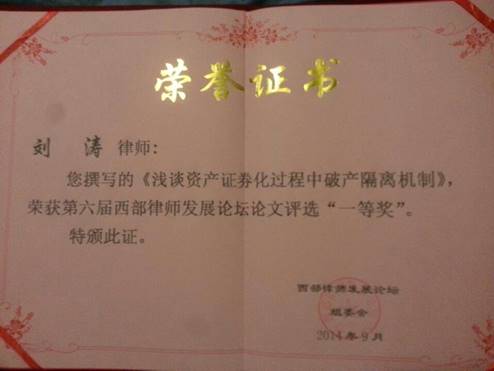 荣誉证书
刘 涛 律师：
您撰写的《浅谈资产证券化过程中破产隔离机制》，
荣获第六届西部律师发展论坛论文评选“一等奖”。
特颁此证。
西部律师发展论坛
组委会
2014年9月